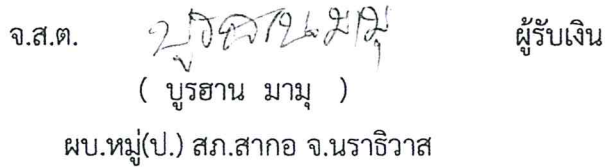 จ.ส.ต. บูรฮานมามุ ผู้รับเงิน
( บูรฮาน มามุ )
ผบ.หมู่(ป.) สภ.สากอ จ.นราธิวาส